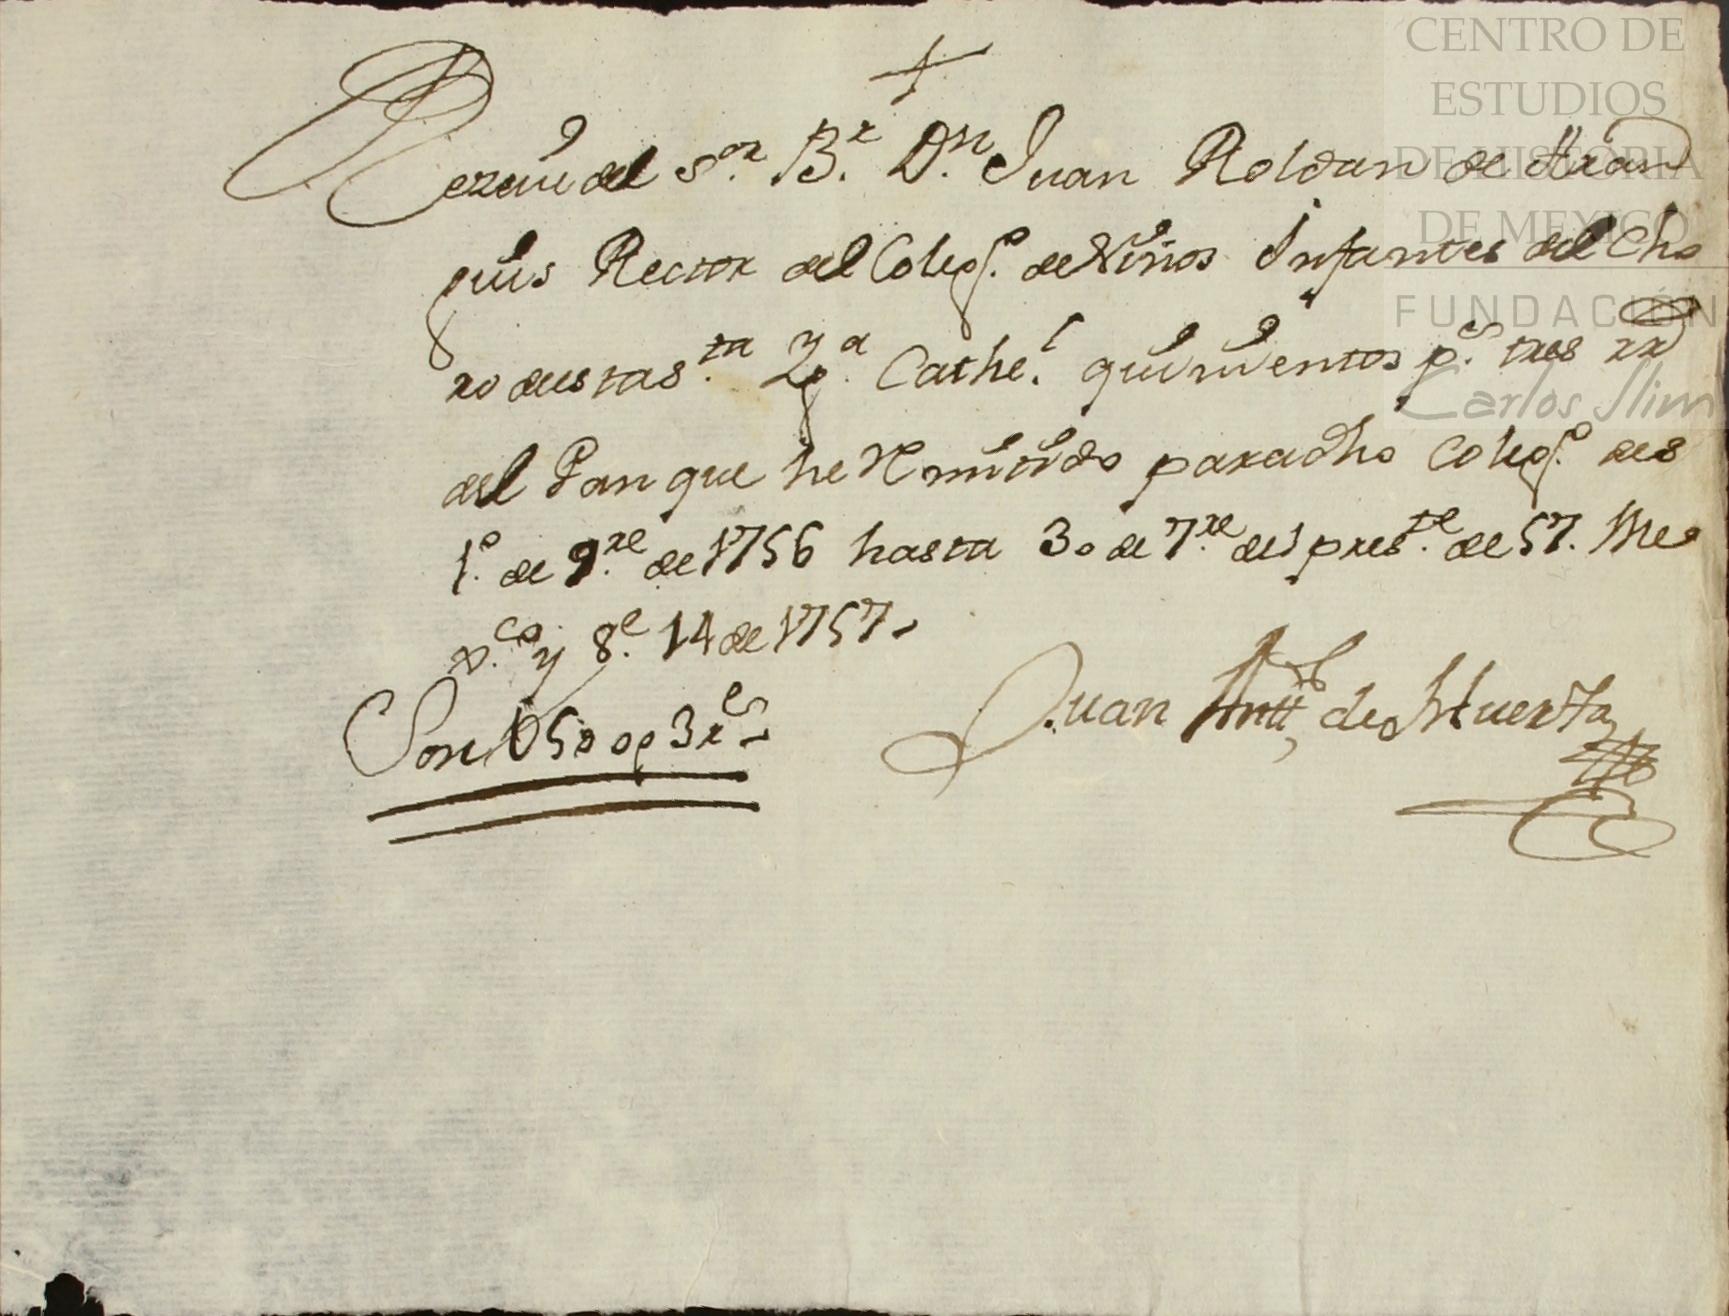 CENTRO DE
ESTUDIOS
DE HISTORIA
DE MEXICO
FUNDACIÓN
Carlos Slim
Rezevi del S.or B.r D.n Juan Roldan de Aran
guis Rector del Coleg.o de Niños Infantes del Cho
ro de esta S.ta Yg.a Cathe.l quinientos p.s tres rr
del Pan que he Remitido para dho Coleg.o des
1.o de 9.re de 1756 hasta 30 de 7.re del pres.te de 57. Me
x.co y 8.e 14 de 1757
Juan Antt.o de Huerta
Son 500 p 3 r.s